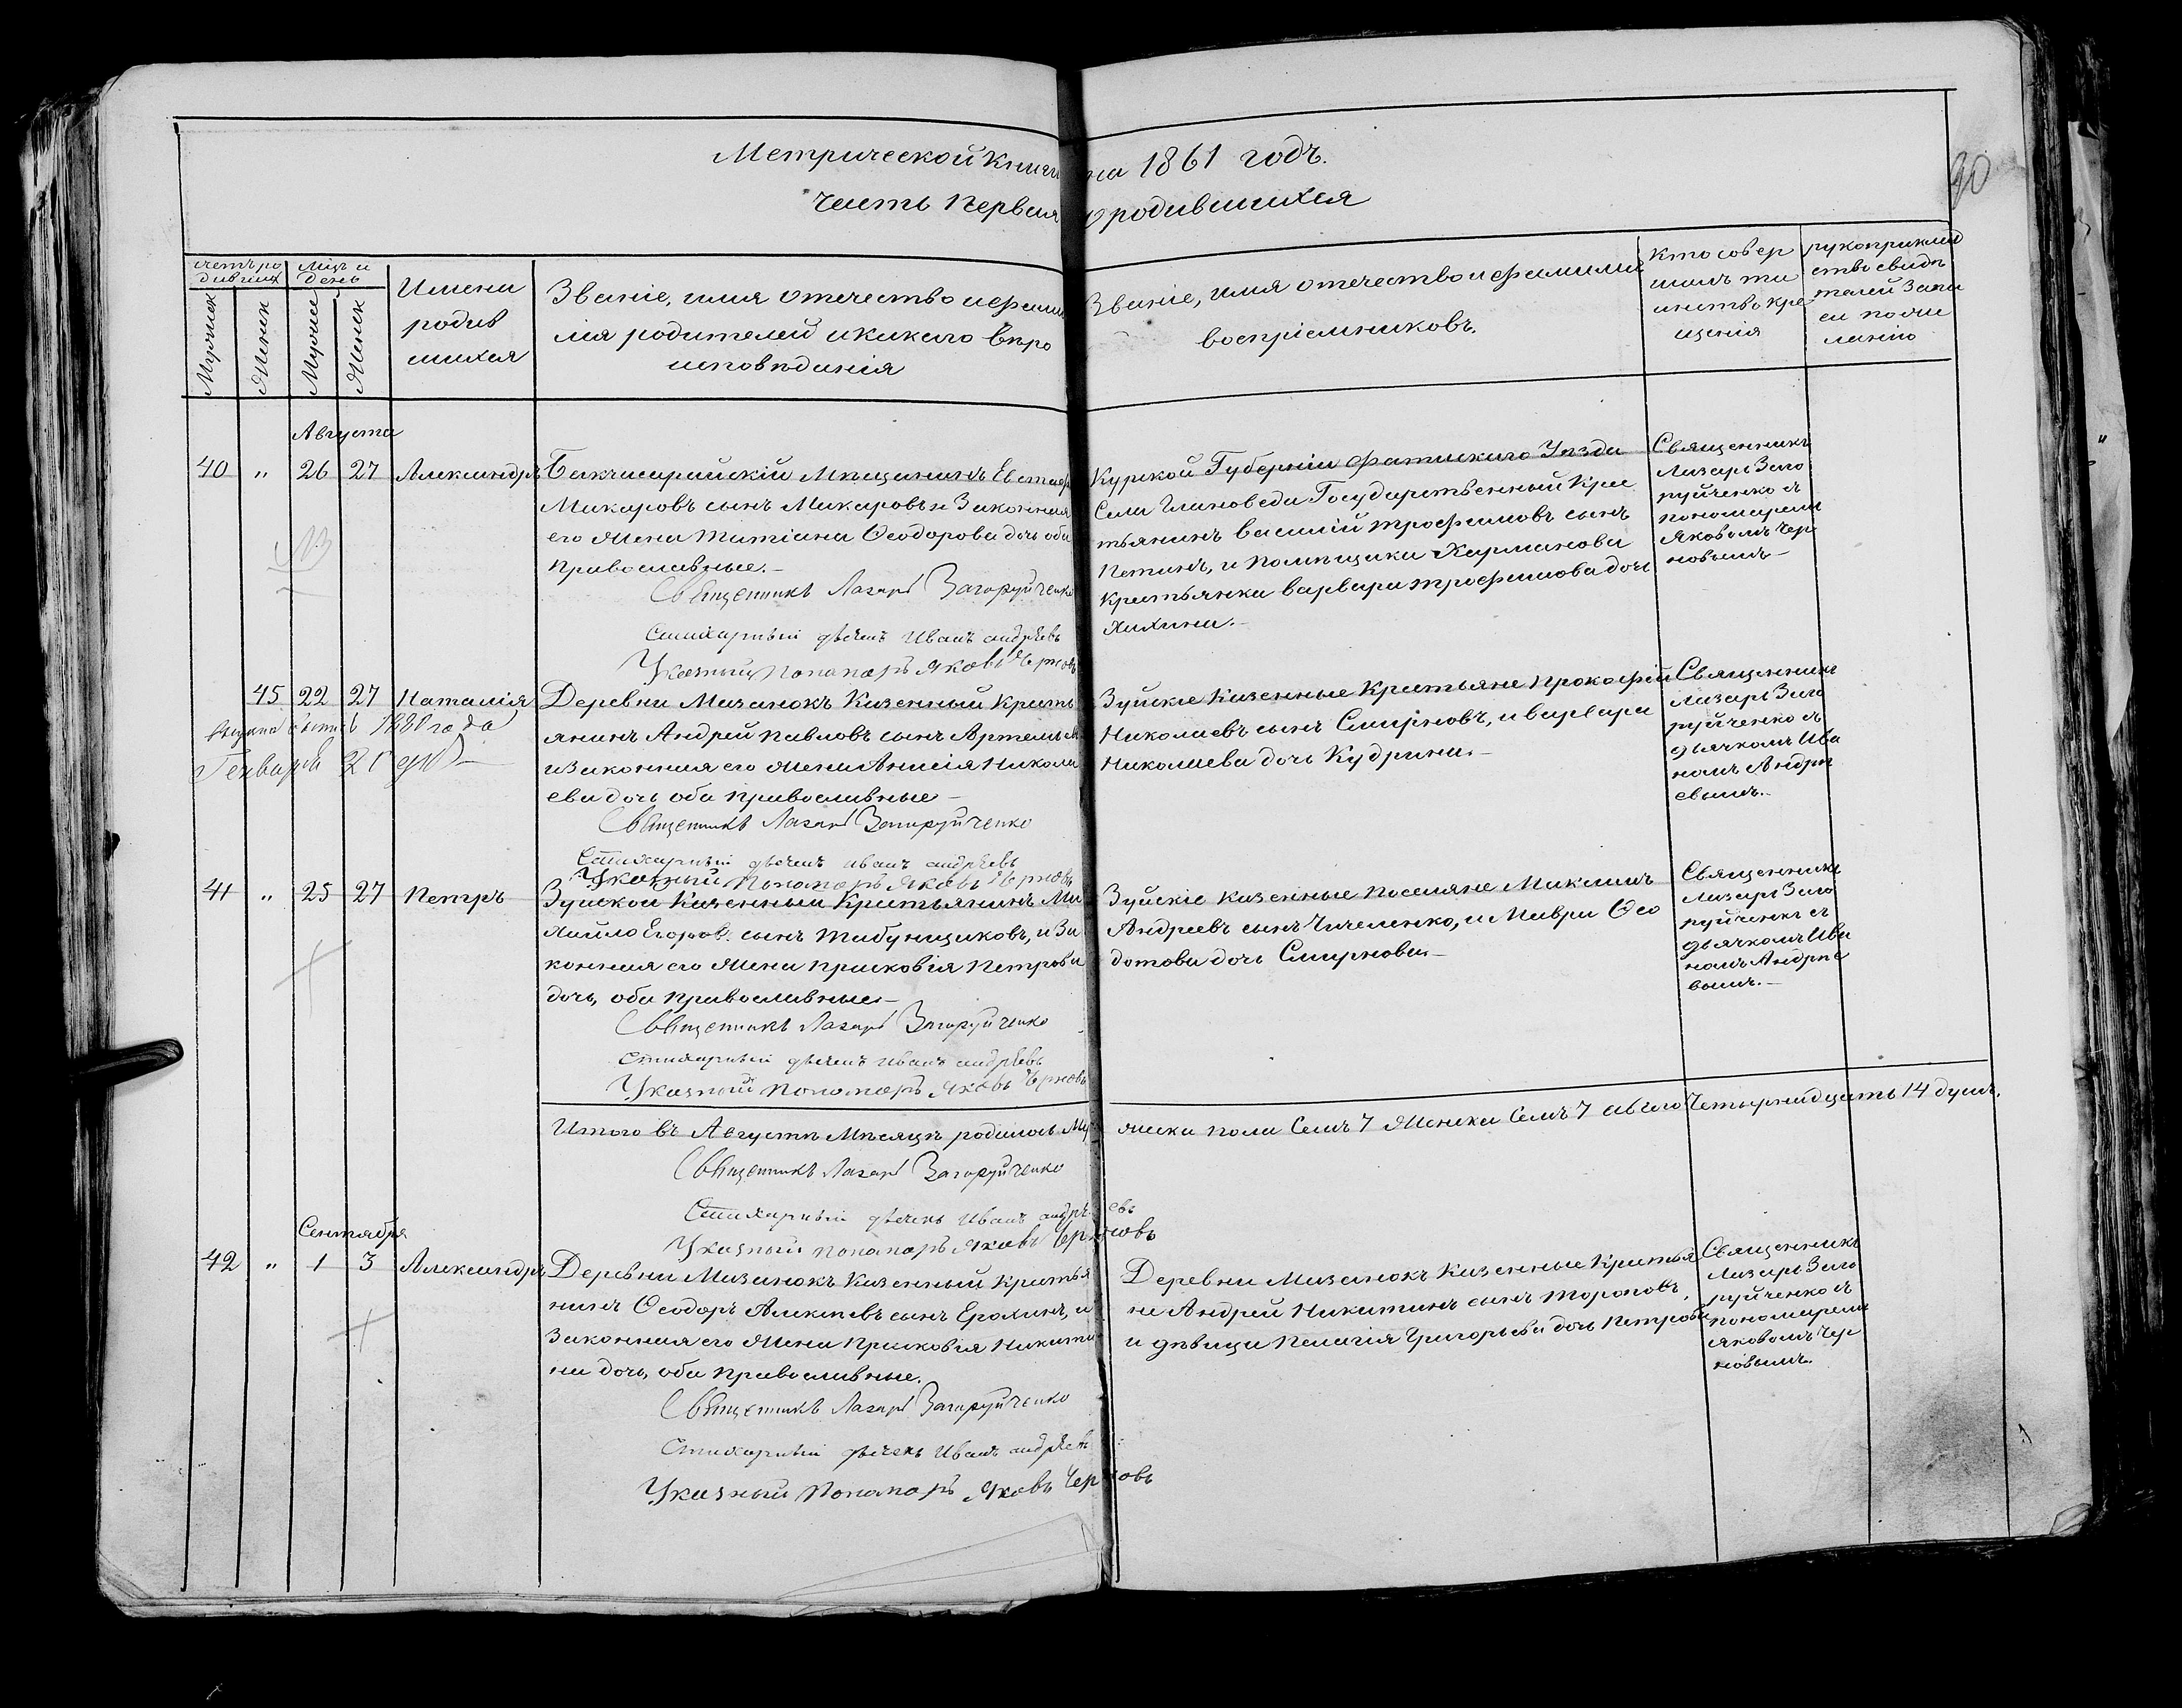 Метрической Книги на 1861 годъ.
Часть Первая о родившихся
90
счетъ ро
дивших
Мцъ и
день
Мужеск
Женск
Имена
родив
шихся
Званіе, имя отечество и фами
лія родителей и какого вѣро
исповѣданія
Званіе, имя отечество и фамилия
воспріемниковъ.
Кто совер
шилъ та
инство кре
щенія
рукоприклад
ство свидѣ
телей запи
си по же
ланію
Августа
40 " 26 27 Александръ
Бакчисарайскій Мѣщанинъ Евстаф
Макаровъ сынъ Макаровъ и Законная
его Жена Татіана Ѳеодорова дочь оба
Православные.-
Священникъ Лазарь Загоруйченко
Стихарный дьячекъ Иванъ андрѣевъ
Указный Понамарь Яковъ Черновъ
Курской Губерніи Фатискаго Уѣзда
Села Государственный Крес
тьянинъ Василій Трофимовъ сынъ
Петинъ, и Помѣщика Харманова
Крестьянка Варвара Трофимова дочь
Священникъ
Лазарь Заго
руйченко съ
пономаремъ
Яковомъ Чер
новымъ-
45 22 27 Наталія
1880 года
Генваря 21 дня
Деревни Мазанокъ Казенный Кресть
янинъ Андрей Павловъ сынъ
и Законная его Жена Анисія Никола
ева дочь оба Православные-
Священникъ Лазарь Загоруйченко
Стихарный дьячекъ иванъ андрѣевъ
Указный Понамарь Яковъ Черновъ
Зуйскіе Казенные Крестьяне Прокофій
Николаевъ сынъ Смирновъ, и Варвара
Николаева дочь Кудрина.-
Священникъ
Лазарь Заго
руйченко съ
дьячкомъ Ива
номъ Андрѣ
евымъ.-
41 " 25 27 Петръ
Зуйской Казенный Крестьянинъ Ми
хайло Егоров. сынъ Табунщиковъ, и За
конная его Жена Прасковія Петрова
дочь, оба Православные.-
Священникъ Лазарь Загоруйченко
Стихарный дьячекъ иванъ андрѣевъ
Указный Пономарь Яковъ Черновъ
Зуйскіе казенные поселяне Максимъ
Андреевъ сынъ Чичеленко, и Мавра Ѳео
дотова дочь Смирнова.-
Священникъ
Лазарь Заго
руйченко съ
дьячкомъ Ива
номъ Андрѣе
вымъ.-
Итого въ Августѣ Мѣсяцѣ родилось Му
жеска пола Семь 7 Женска Семь 7 а всего Четырнадцать 14 душъ.
Священникъ Лазарь Загоруйченко
Стихарный дьячекъ Иванъ андрѣевъ
Указный понамарь Яковъ Черновъ
Сентября
42 " 1 3 Александръ
Деревни Мазанокъ Казенный Крестья
нинъ Ѳеодоръ Алексѣевъ сынъ Ерохинъ, и
Законная его Жена Прасковія Никити
на дочь, оба Православные.
Священникъ Лазарь Загоруйченко
Стихарный дьячекъ Иванъ андрѣевъ
Указный Понамарь Яковъ Черновъ
Деревни Мазанокъ Казенные Крестья
не Андрей Никитинъ сынъ Тороповъ,
и дѣвица Пелагія Григорьева дочь Петрова
Священникъ
Лазарь Заго
руйченко съ
пономаремъ
Яковомъ Чер
новымъ.